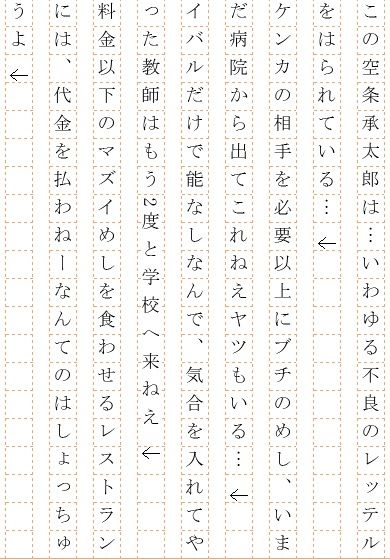 この空条承太郎は…いわゆる不良のレッテル
をはられている…←
ケンカの相手を必要以上にブチのめし、いま
だ病院から出てこれねえヤツもいる…←
イバルだけで能なしなんで、気合を入れてや
った教師はもう2度と学校へ来ねえ←
料金以下のマズイめしを食わせるレストラン
には、代金を払わねーなんてのはしょっちゅ
うよ←